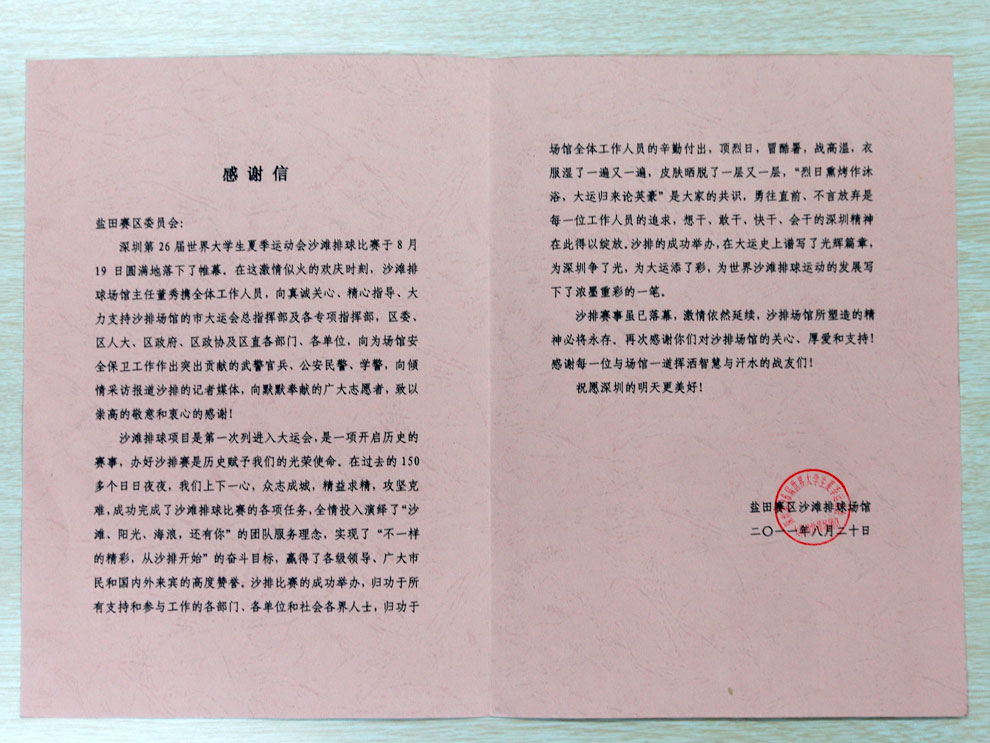 感谢信
盐田赛区委员会：
深圳第26届世界大学生夏季运动会沙滩排球比赛于8月
19日圆满地落下了帷幕。在这激情似火的欢庆时刻，沙滩排
球场馆主任董秀携全体工作人员，向真诚关心、精心指导、大
力支持沙排场馆的市大运会总指挥部及各专项指挥部，区委、
区人大、区政府、区政协及区直各部门、各单位，向为场馆安
全保卫工作作出突出贡献的武警官兵、公安民警、学警，向倾
情采访报道沙排的记者媒体，向默默奉献的广大志愿者，致以
崇高的敬意和衷心的感谢！
沙滩排球项目是第一次列进入大运会，是一项开启历史的
赛事，办好沙排赛是历史赋予我们的光荣使命。在过去的150
多个日日夜夜，我们上下一心，众志成城，精益求精，攻坚克
难，成功完成了沙滩排球比赛的各项任务，全情投入演绎了“沙
滩、阳光、海浪，还有你”的团队服务理念，实现了“不一样
的精彩，从沙排开始”的奋斗目标，赢得了各级领导、广大市
民和国内外来宾的高度赞誉。沙排比赛的成功举办，归功于所
有支持和参与工作的各部门、各单位和社会各界人士，归功于
场馆全体工作人员的辛勤付出，顶烈日，冒酷暑，战高温，衣
服湿了一遍又一遍，皮肤晒脱了一层又一层，“烈日熏烤作沐
浴，大运归来论英豪”是大家的共识，勇往直前、不言放弃是
每一位工作人员的追求，想干、敢干、快干、会干的深圳精神
在此得以绽放。沙排的成功举办，在大运史上谱写了光辉篇章，
为深圳争了光，为大运添了彩，为世界沙滩排球运动的发展写
下了浓墨重彩的一笔。
沙排赛事虽已落幕，激情依然延续，沙排场馆所塑造的精
神必将永存、再次感谢你们对沙排场馆的关心、厚爱和支持！
感谢每一位与场馆一道挥洒智慧与汗水的战友们！
祝愿深圳的明天更美好！
盐田赛区沙滩排球场馆
二〇一一年八月二十日